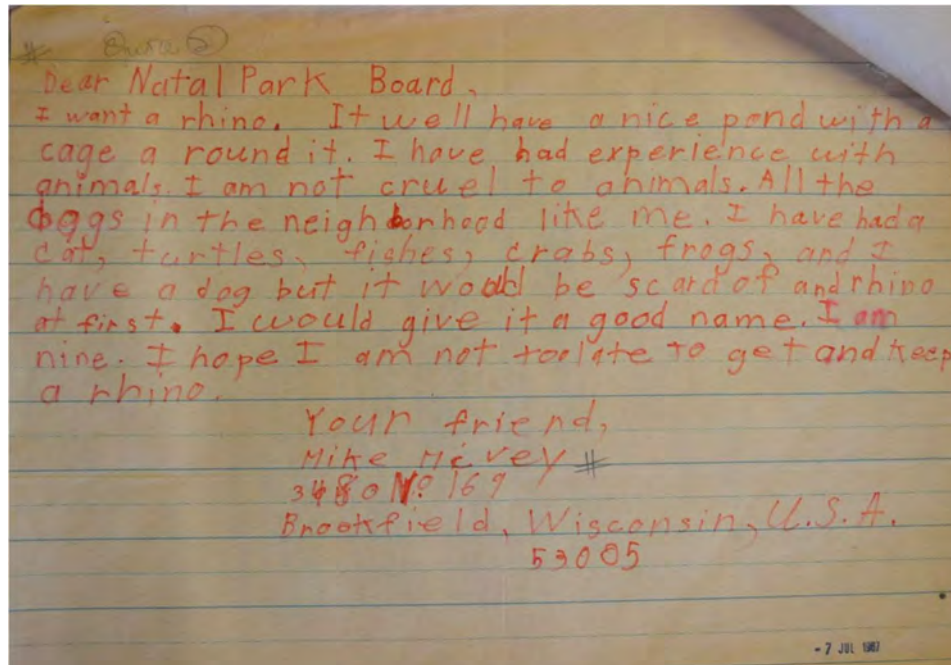 Dear Natal Park Board,
I want a rhino. It well have a nice pond with a
cage a round it. I have had experience with
animals. I am not cruel to animals. All the
doggs in the neighborhood like me. I have had a
cat, turtles, fishes, crabs, frogs, and I
have a dog but it would be scard of and rhino
at first. I would give it a good name. I am
nine. I hope I am not too late to get and keep
a rhino.
Your friend,
Mike McVey #
3480 No 169
Brookfield, Wisconsin, U.S.A.
53005
- 7 JUL 1967